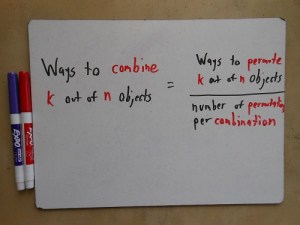 Ways to combine
k out of n objects
=
Ways to permute
k out of n objects
number of permutations
per combination
EXPO
EXPO